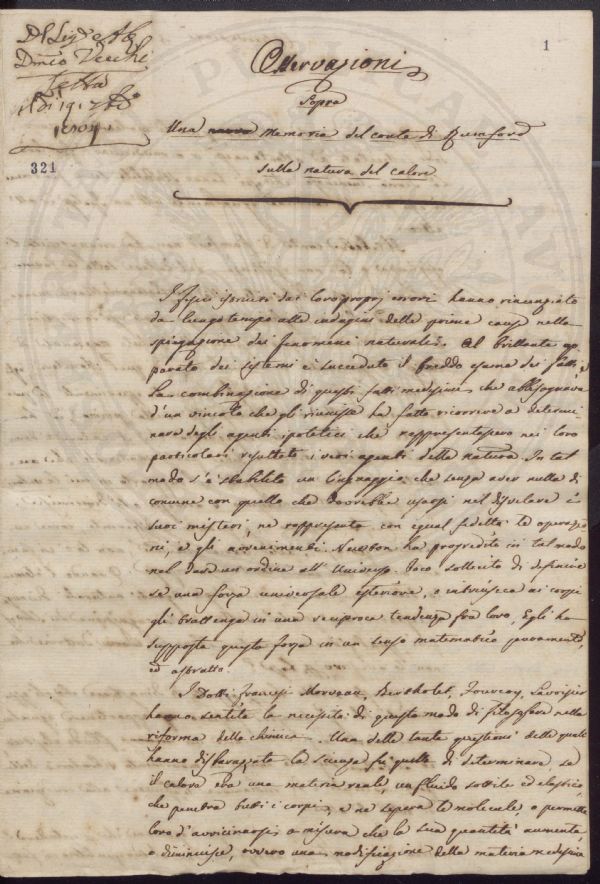 1
Del Sig.e Ab.
Dmco Vecchi
Letta
321
Osservazioni
Sopra
Una nuova Memoria del conte di Rumford
sulla natura del calore
I fisici istruiti dai loro proprj errori hanno rinunziato
da lungo tempo alle indagini delle prime cause nella
spiegazione dei fenomeni naturali. Al brillante ap
parato dei sistemi è succeduto il freddo esame dei fatti,
La combinazione di questi fatti medesimi che abbisognava
d'un vincolo che gli riunisse ha fatto ricorrere a determi
nare degli agenti ipotetici che rappresentassero nei loro
particolari resultati i veri agenti della natura. In tal
modo s'è stabilito un linguaggio che senza aver nulla di
comune con quello che dovrebbe usarsi nel disvelare i
suoi misterj, ne rappresenta con egual fedeltà le operazio
ni, e gli avvenimenti. Newton ha progredito in tal modo
nel dare un ordine all'Universo. Poco sollecito di definire
se una forza universale esteriore, o intrinseca ai corpi
gli trattenga in una reciproca tendenza fra loro, Egli ha
supposta questa forza in un senso matematico puramente,
ed astratto.
I Dotti francesi Morveau, Bertholet, Fourcroy, Lavoisier
hanno sentita la necessità di questo modo di filosofare nella
riforma della chimica. Una delle tante questioni delle quali
hanno disbarazzata la scienza fù quella di determinare se
il calore era una materia reale, un fluido sottile ed elastico,
che penetra tutti i corpi, e ne separa le molecule, o permette
loro d'avvicinarsi a misura che la sua quantità aumenta,
o diminuisce, ovvero una modificazione della materia medesima